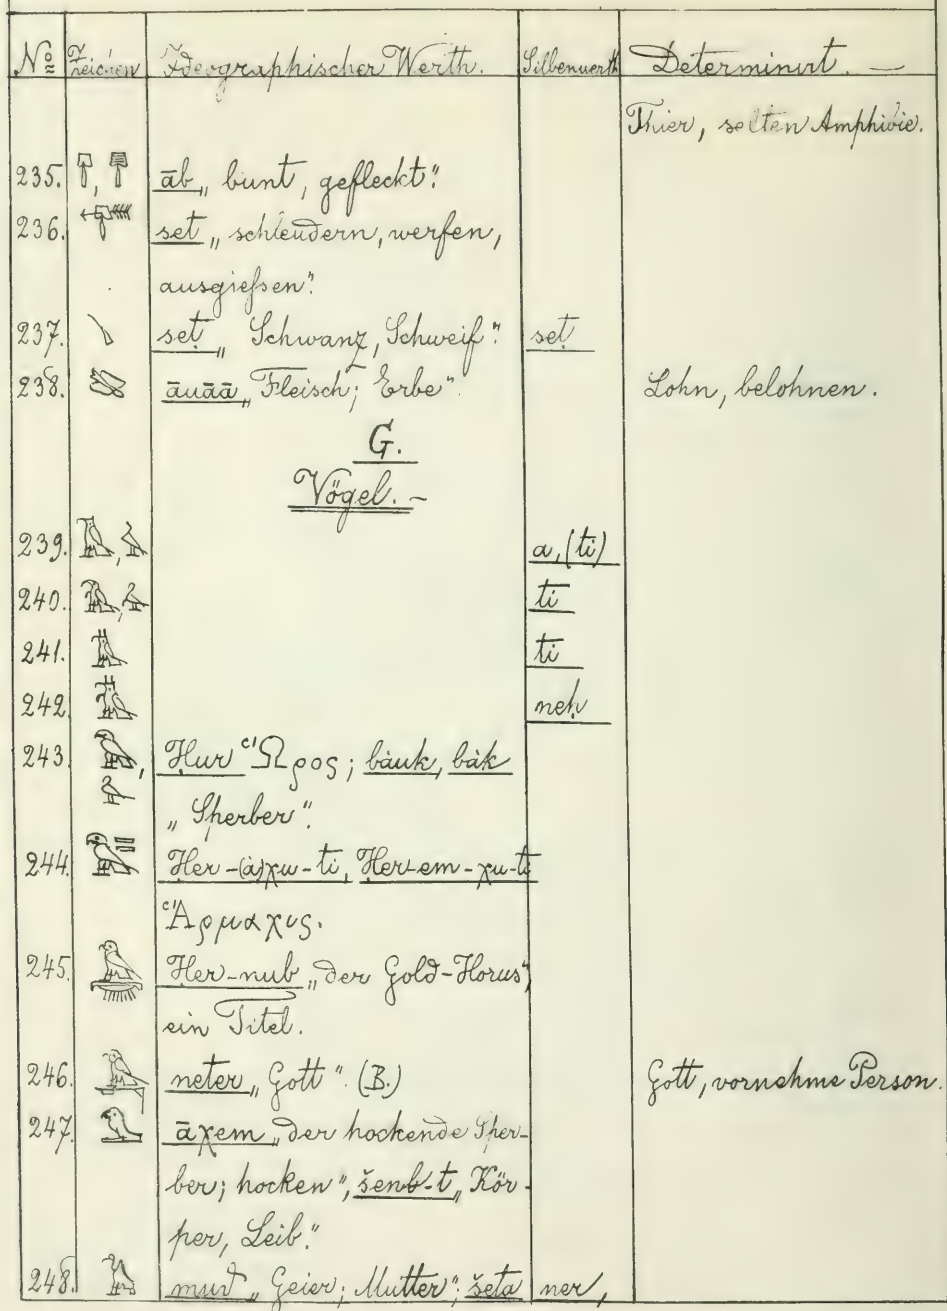 No Zeichen Ideographischer Werth. Silbenwerth Determinirt. —
Thier, selten Amphibie.
235. āb „bunt, gefleckt".
236. set „schleudern, werfen,
ausgießen".
237. seṭ „Schwanz, Schweif". seṭ
238. āuāā „Fleisch; Erbe". Lohn, belohnen.
G.
Vögel. —
239. a, (ti)
240. ti
241. ti
242. neḥ
243. Ḥur Ὧρος; bàuk, bàk
„Sperber".
244. Ḥer-(à)χu-ti, Ḥer-em-χu-ti
Ἅρμαχυς.
245. Ḥer-nub „der Gold-Horus",
ein Titel.
246. neter „Gott". (B.) Gott, vornehme Person.
247. āχem „der hockende Sper-
ber; hocken", šenb-t „Kör-
per, Leib."
248. „Geier; Mutter"; šeta ner,